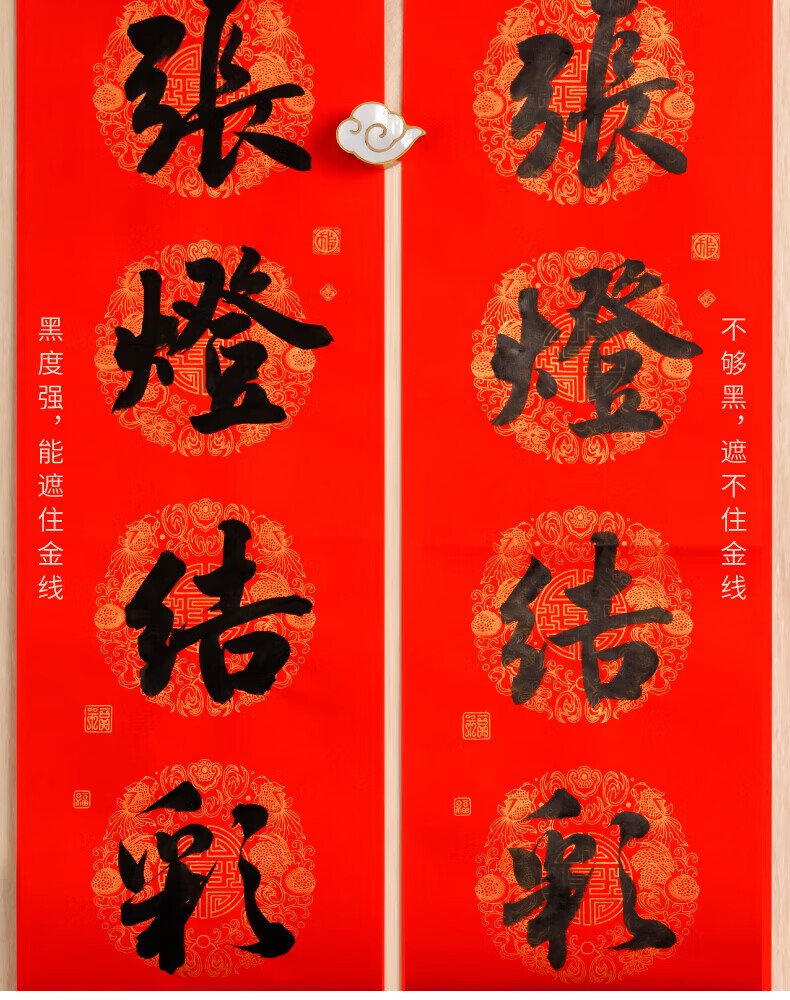 張燈結彩
張燈結彩
黑度强，能遮住金线
不够黑，遮不住金线